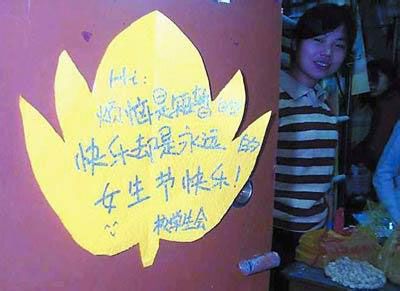 Hi:
烦恼是短暂的
快乐却是永远的
女生节快乐!
物学生会